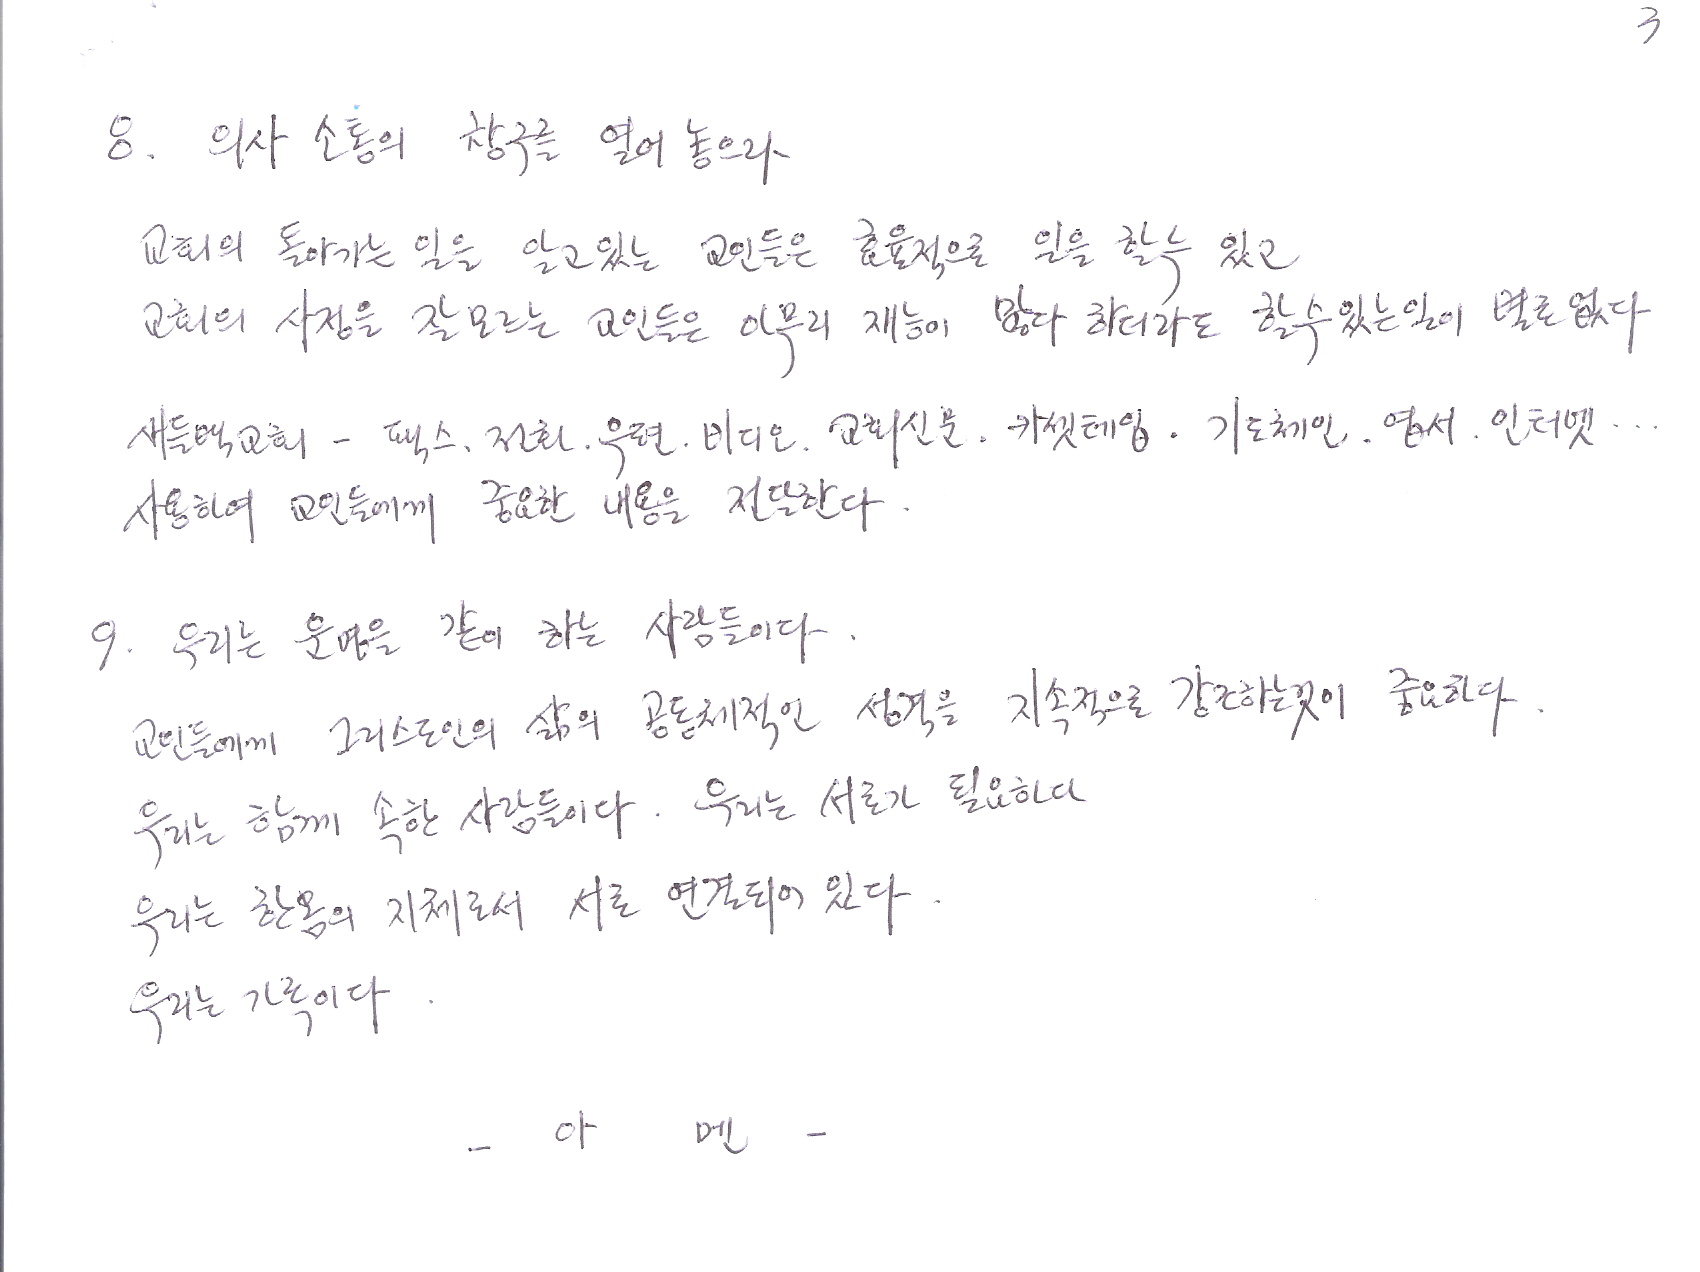 3
8. 의사 소통의 창구를 열어 놓으라
교회의 돌아가는 일을 알고있는 교인들은 효율적으로 일을 할수 있고
교회의 사정을 잘모르는 교인들은 아무리 재능이 많다 하더라도 할수있는일이 별로없다
새들백교회 - 팩스. 전화. 우편. 비디오. 교회신문. 카셋테잎. 기도체인. 엽서. 인터넷...
사용하여 교인들에게 중요한 내용을 전달한다.
9. 우리는 운명을 같이 하는 사람들이다.
교인들에게 그리스도인의 삶의 공동체적인 성격을 지속적으로 강조하는것이 중요하다.
우리는 함께 속한 사람들이다. 우리는 서로가 필요하다
우리는 한몸의 지체로서 서로 연결되어 있다.
우리는 가족이다.
- 아 멘 -